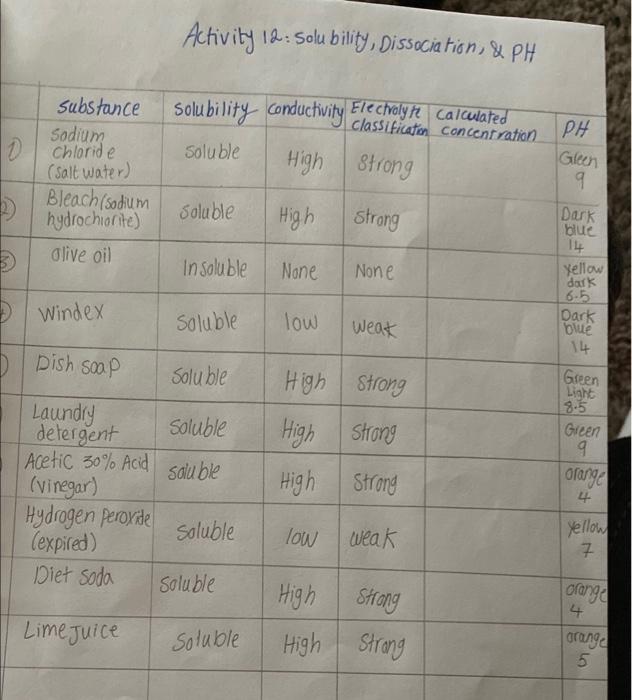 Activity 12: Solubility, Dissociation, & PH
Substance Solubility Conductivity Electrolyte Classification Calculated Concentration PH
1) Sodium Chloride (salt water) Soluble High Strong Green 9
2) Bleach (sodium hydrochlorite) Soluble High Strong Dark blue 14
3) olive oil Insoluble None None Yellow dark 6.5
Windex Soluble low weak Dark blue 14
Dish soap Soluble High Strong Green Light 8.5
Laundry detergent Soluble High Strong Green 9
Acetic 30% Acid (vinegar) Soluble High Strong orange 4
Hydrogen Peroxide (expired) Soluble low weak yellow 7
Diet soda Soluble High Strong orange 4
Lime Juice Soluble High Strong orange 5